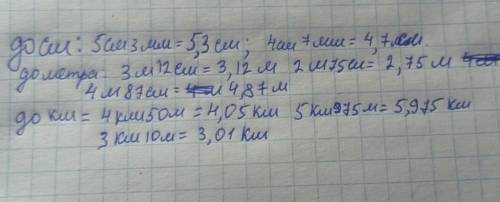 до см: 5см3мм=5,3см; 4см7мм=4,7см
до метра: 3м12см=3,12м 2м75см=2,75м
4м87см= 4,87м
до км= 4км50м=4,05км 5км975м=5,975км
3км10м=3,01км